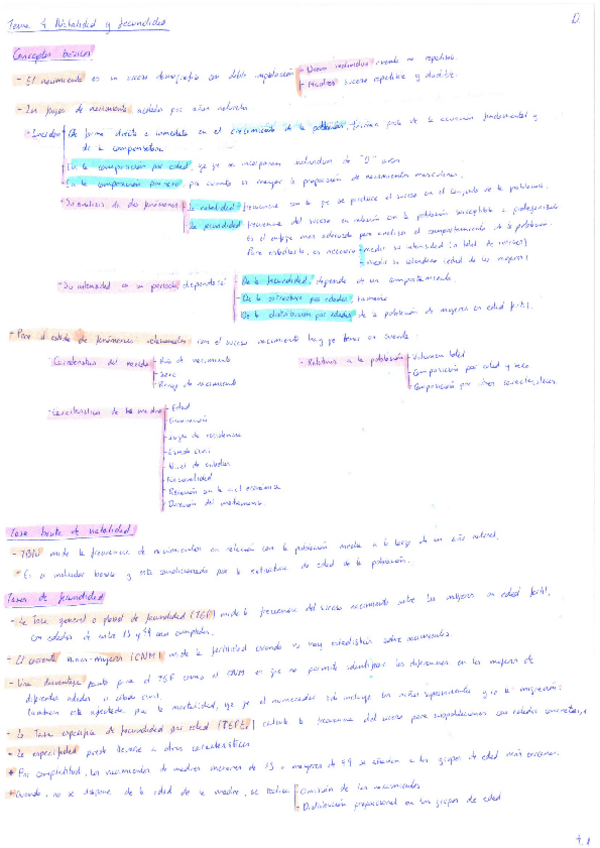 Tema 4 Natalidad y fecundidad
Conceptos básicos
- El nacimiento es un suceso demográfico con doble implicación
- Nuevos individuos evento no repetible.
- Madres suceso repetible y
- Los flujos de nacimiento acotados por años naturales
- Inciden
De forma directa e inmediata en el crecimiento de la población, forma parte de la ecuación fundamental y de la compensadora
En la composición por edad, ya que se incorporan individuos de "0" años
En la composición por sexo por cuanto es mayor la proporción de nacimientos masculinos.
- Su análisis da dos fenómenos
La natalidad frecuencia con la que se produce el suceso en el conjunto de la población.
La fecundidad frecuencia del suceso en relación con la población susceptible a protagonizarlo
Es el enfoque más adecuado para analizar el comportamiento de la población.
Para estudiarla, es necesario
- medir su intensidad (n total de sucesos)
- medir su calendario (edad de las mujeres)
- Su intensidad en un periodo dependerá
- De la fecundidad, depende de un comportamiento.
- De la estructura por edades, tamaño
- De la distribución por edades de la población de mujeres en edad fértil.
- Para el estudio de fenómenos relacionados con el suceso nacimiento hay que tener en cuenta:
- Características del nacido
- Año de nacimiento
- Sexo
- Rango de nacimiento
- Relativas a la población
- Volumen total
- Composición por edad y sexo
- Composición por otras características.
- Características de la madre
- Edad
- Generación
- Lugar de residencia
- Estado civil
- Nivel de estudios
- Nacionalidad
- Relación con la act. económica
- Duración del matrimonio.
Tasa bruta de natalidad
- TBN mide la frecuencia de nacimientos en relación con la población media a lo largo de un año natural.
* Es un indicador básico y está condicionado por la estructura de edad de la población.
Tasas de fecundidad
- La Tasa general o global de fecundidad (TGF) mide la frecuencia del suceso nacimiento sobre las mujeres en edad fértil, con edades de entre 15 y 49 años cumplidos.
- El cociente niños-mujeres (CNM) mide la fertilidad cuando no hay estadísticas sobre nacimientos.
- Una desventaja tanto para el TGF como el CNM es que no permite identificar las diferencias en las mujeres de diferentes edades o estado civil.
También está afectada por la mortalidad, ya que el numerador solo incluye los niños supervivientes y por la migración.
- La Tasa específica de fecundidad por edad (TEFE) calcula la frecuencia del suceso para subpoblaciones con edades concretas,
- La especificidad puede llevarse a otras características
* Por comparabilidad, los nacimientos de madres menores de 15 o mayores de 49 se añaden a los grupos de edad más cercanos.
* Cuando, no se dispone de la edad de la madre, se realiza
- Omisión de los nacimientos
- Distribución proporcional en los grupos de edad
4.1